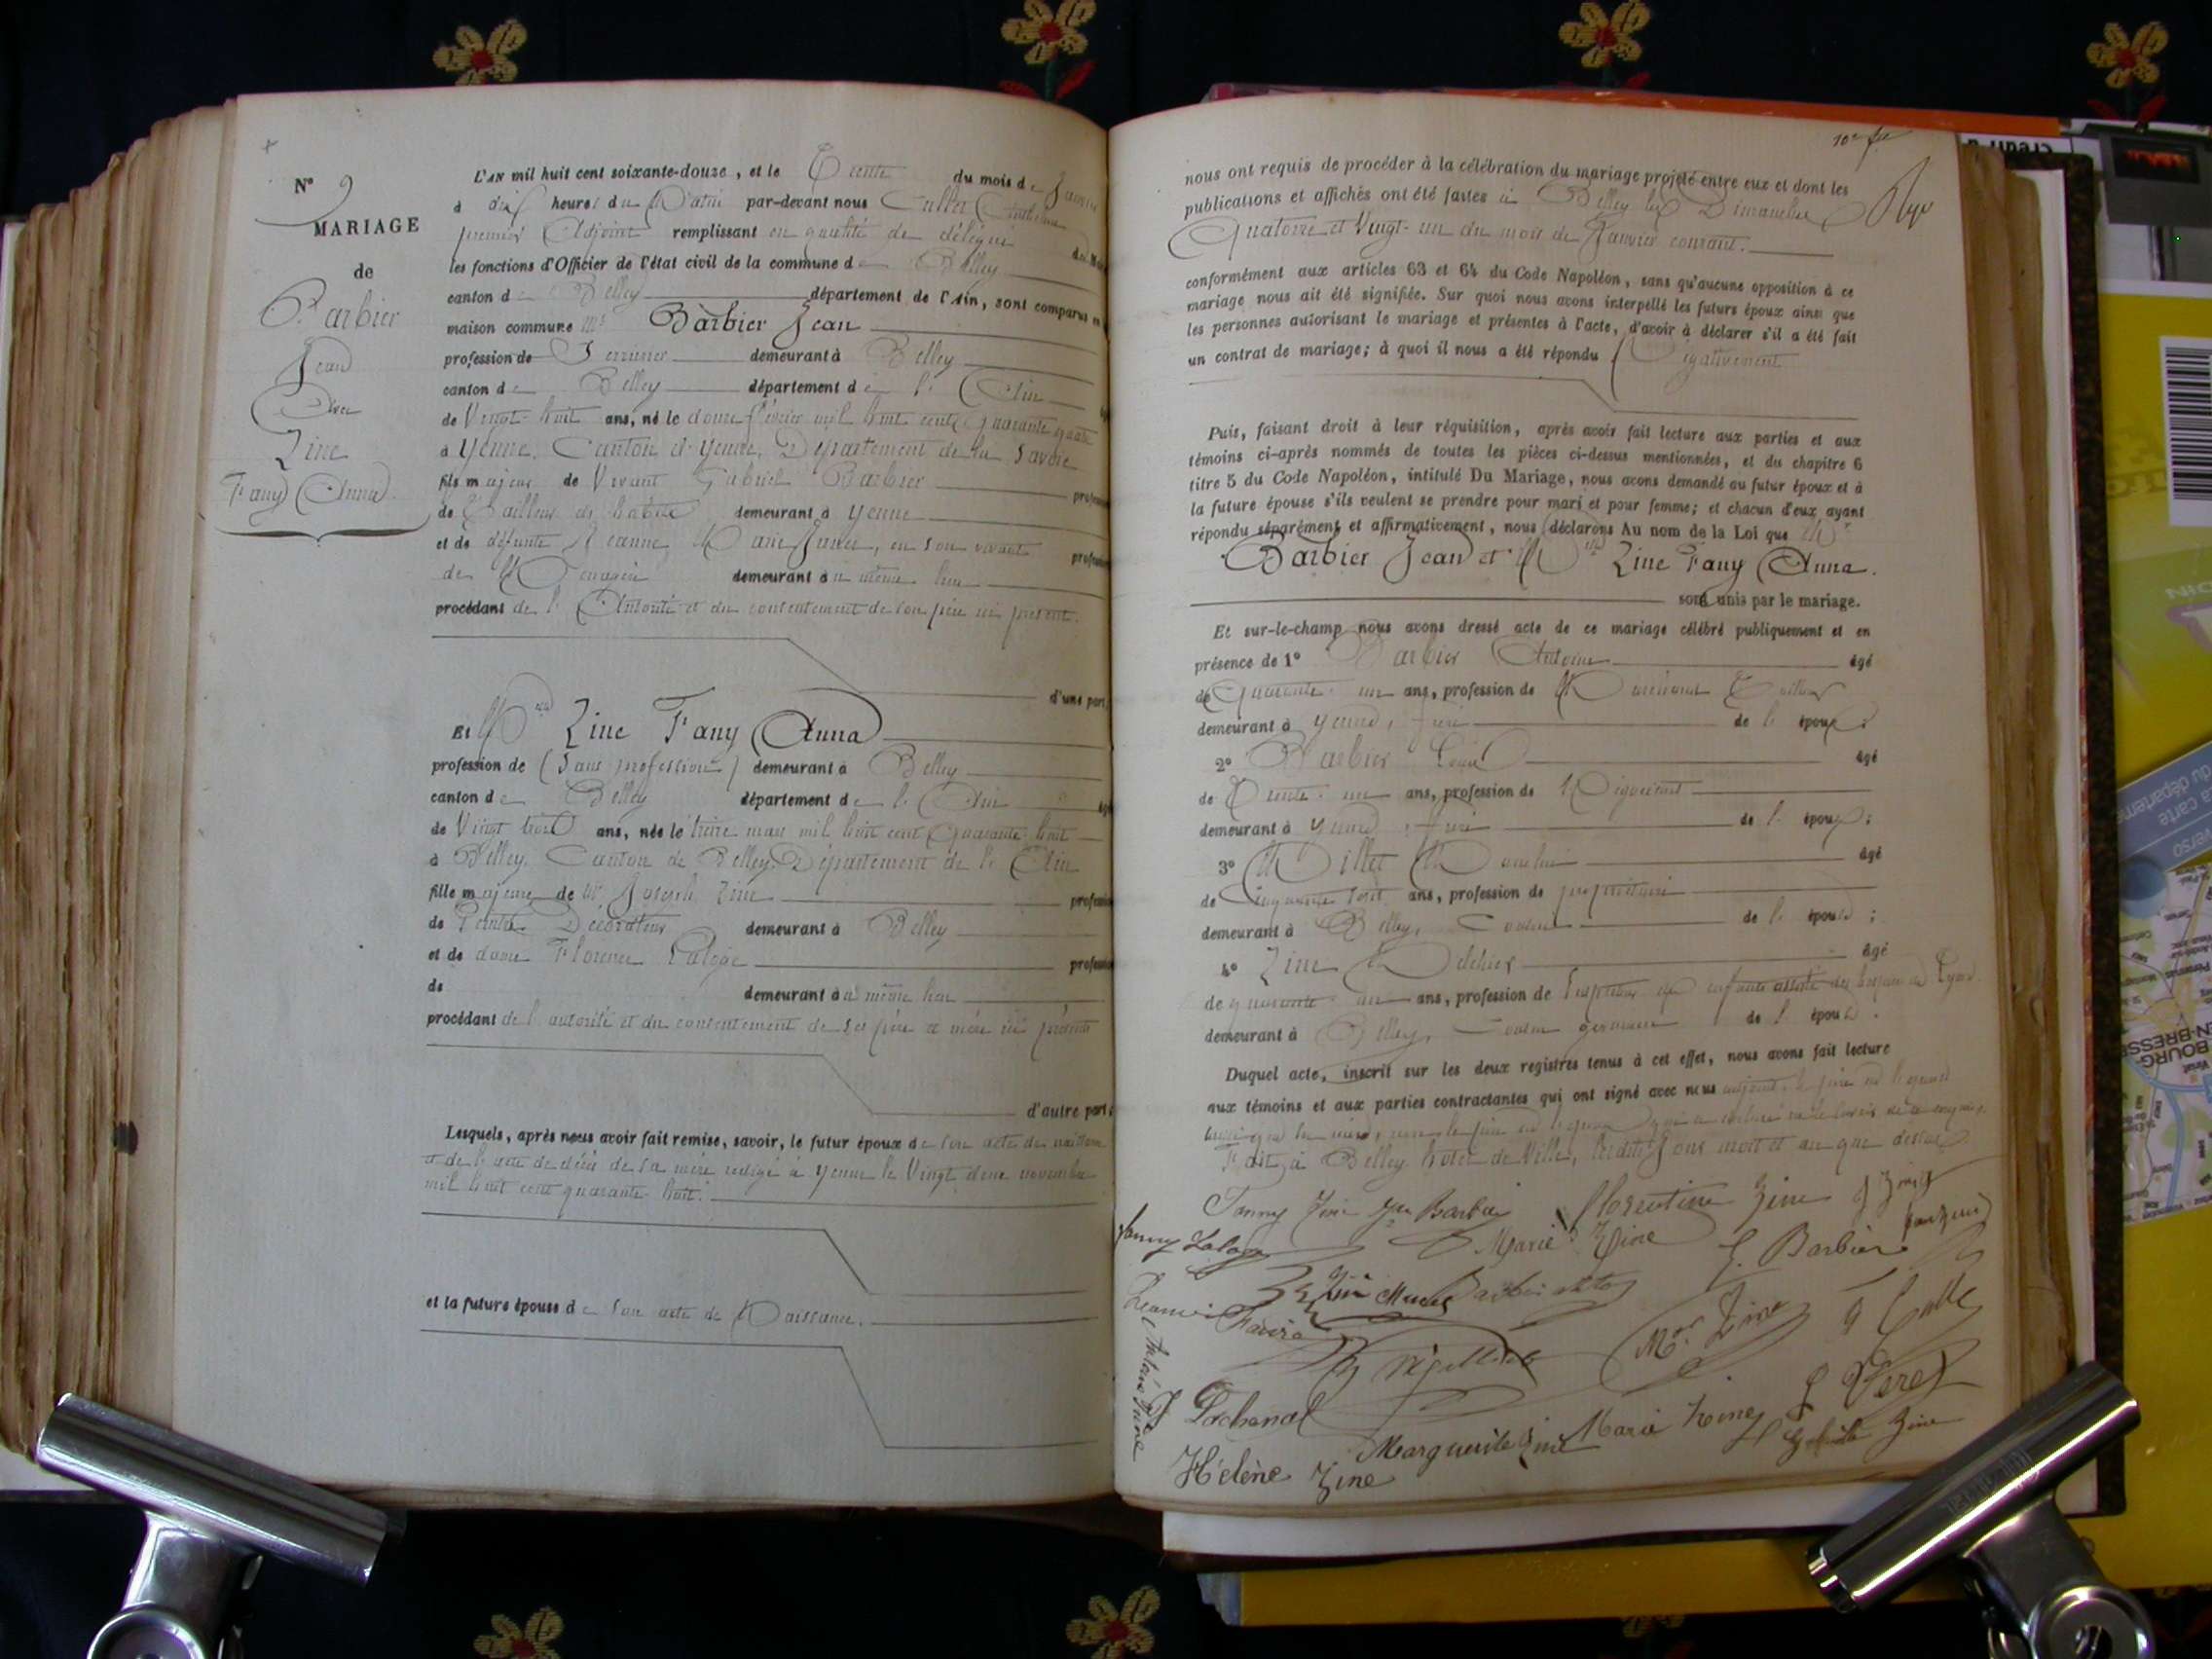 N° 9
MARIAGE
de
Barbier
Jean
Avec
Zine
Fany Anna.
L'AN mil huit cent soixante-douze, et le Trente du mois de Janvier
à dix heures du Matin par-devant nous
premier Adjoint remplissant en qualité de délégué
les fonctions d'Officier de l'état civil de la commune de Belley
canton de Belley département de l'Ain, sont comparus en
maison commune Mr Barbier Jean
profession de demeurant à Belley
canton de Belley département de l'Ain
de Vingt-huit ans, né le douze février mil huit cent quarante quatre
à Yenne, Canton d'Yenne, Département de la Savoie
fils majeur de Vivant Gabriel Barbier
de Tailleur de demeurant à Yenne
et de défunte Jeanne Marie en son vivant
de Ménagère demeurant au même lieu
procédant de l'Autorité et du consentement de son père ici présent.
d'une part,
Et Mlle Zine Fany Anna
profession de (Sans profession) demeurant à Belley
canton de Belley département de l'Ain
de Vingt trois ans, née le treize mars mil huit cent quarante-huit
à Belley, Canton de Belley, Département de l'Ain
fille majeure de Mr Joseph Zine
de Peintre Décorateur demeurant à Belley
et de dame Florence
de demeurant au même lieu
procédant de l'autorité et du consentement de ses père et mère ici présents
d'autre part,
Lesquels, après nous avoir fait remise, savoir, le futur époux de son acte de naissance
et de l'acte de décès de sa mère rédigé à Yenne le Vingt deux novembre
mil huit cent quarante-huit.
et la future épouse de son acte de Naissance.
nous ont requis de procéder à la célébration du mariage projeté entre eux et dont les
publications et affiches ont été faites à Belley les Dimanches
Quatorze et Vingt-un du mois de Janvier courant.
conformément aux articles 63 et 64 du Code Napoléon, sans qu'aucune opposition à ce
mariage nous ait été signifiée. Sur quoi nous avons interpellé les futurs époux ainsi que
les personnes autorisant le mariage et présentes à l'acte, d'avoir à déclarer s'il a été fait
un contrat de mariage; à quoi il nous a été répondu Négativement
Puis, faisant droit à leur réquisition, après avoir fait lecture aux parties et aux
témoins ci-après nommés de toutes les pièces ci-dessus mentionnées, et du chapitre 6
titre 5 du Code Napoléon, intitulé Du Mariage, nous avons demandé au futur époux et à
la future épouse s'ils veulent se prendre pour mari et pour femme; et chacun d'eux ayant
répondu séparément et affirmativement, nous déclarons Au nom de la Loi que Mr
Barbier Jean et Mlle Zine Fany Anna.
sont unis par le mariage.
Et sur-le-champ nous avons dressé acte de ce mariage célébré publiquement et en
présence de 1° Barbier Antoine âgé
de Quarante-un ans, profession de Marchand Tailleur
demeurant à Yenne, frère de l'époux;
2° Barbier Louis âgé
de Trente-un ans, profession de Négociant
demeurant à Yenne, frère de l'époux;
3° âgé
de Cinquante ans, profession de propriétaire
demeurant à Belley, Cousin de l'épouse;
4° Zine âgé
de quarante-un ans, profession de Inspecteur des enfants assistés des hospices de Lyon
demeurant à Belley, Cousin germain de l'épouse.
Duquel acte, inscrit sur les deux registres tenus à cet effet, nous avons fait lecture
aux témoins et aux parties contractantes qui ont signé avec nous
Fait à Belley hotel de Ville, lesdits jour mois et an que dessus
Fanny Zine Barbier Florentine Zine
Marie Zine G. Barbier
Mr Zine
Pochenal
Marguerite Zine Marie Zine
Hélène Zine